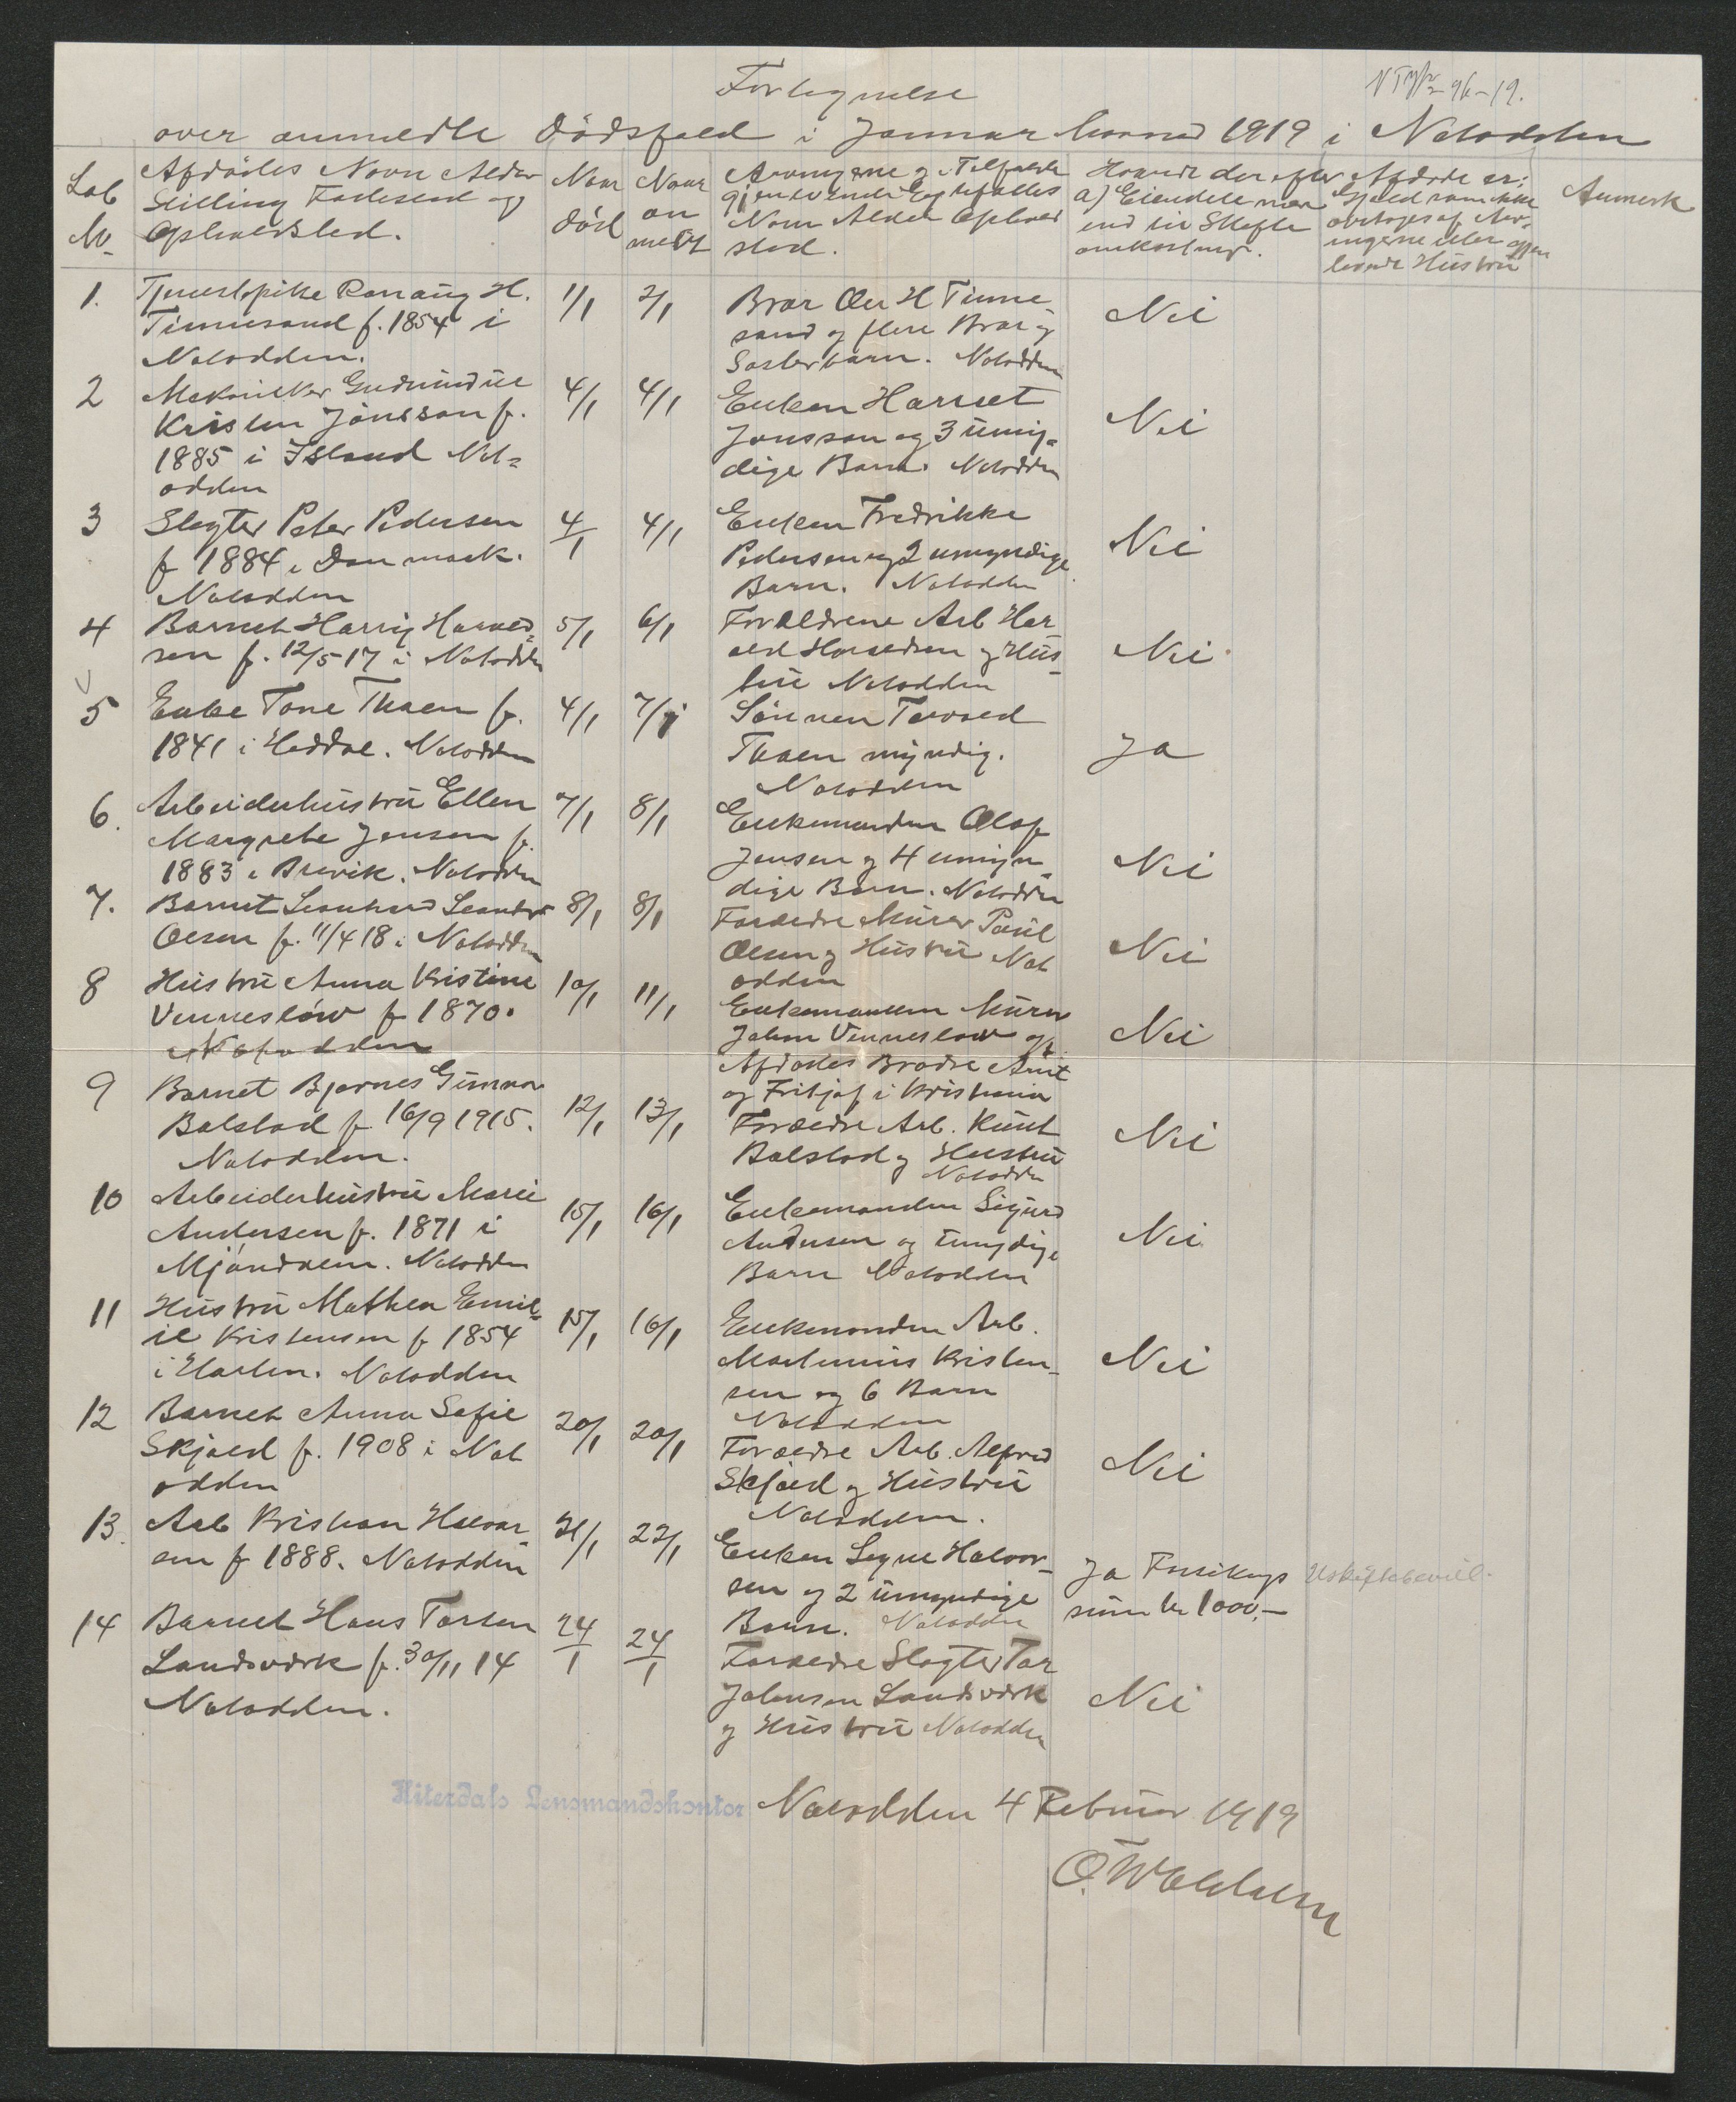 Fortegnelse
over anmeldte Dødsfald i Januar Maaned 1919 i Notodden
Løb No.
Afdødes Navn Alder Stilling Fødested og Opholdsted.
Naar død
Naar anmeldt
Arvingerne og i Tilfælde gjenlevende Egtefælles Navn Alder Ophold sted.
Hvorvidt der efter Afdøde er:
a) Eiendele mer end til Skifte omkostninger.
Gjæld som ikke overtages af Arvingerne eller gjenlevende Hustru
Anmerk
1. Tjenestepike Rønaug H. 1/1 2/1 Bror Ole H Tinne Nei
Tinnesand f. 1854 i sand og flere Bror og
Notodden. Søsterbarn. Notodden
2 Mekaniker Gudmundur 4/1 4/1 Enken Harriet Nei
Kristen Jónsson f. Jonsson og 3 umyn-
1885 i Island Not= dige Barn. Notodden
odden
3 Slagter Peter Pedersen 4/1 4/1 Enken Fredrikke Nei
f 1884 i Danmark. Pedersen og 2 umyndige
Notodden Barn. Notodden
4 Barnet Harry Harald= 5/1 6/1 Forældrene Arb Har Nei
sen f. 12/5-17 i Notodden ald Haraldsen og Hus-
tru Notodden
5 Enke Tone Thoen f. 4/1 7/1 Sønnen Torvald Ja
1841 i Heddal. Notodden Thoen myndig.
Notodden
6. Arbeiderhustru Ellen 7/1 8/1 Enkemanden Olaf Nei
Margrete Jensen f. Jensen og 4 umyn
1883 i Brevik. Notodden dige Barn. Notodden
7. Barnet Leonhard Leander 8/1 8/1 Forældre Murer Paul Nei
Olsen f. 11/4 18 i Notodden Olsen og Hustru Not
odden
8 Hustru Anna Kristine 10/1 11/1 Enkemanden Murer Nei
Venneslöw f 1870. Johan Venneslöw og
Notodden Afdødes Brødre Arnt
og Fritjof i Kristiania
9 Barnet Bjarnes Gunnar 12/1 13/1 Forældre Arb. Knut Nei
Bolstad f. 16/9 1915. Bolstad og Hustru
Notodden. Notodden
10 Arbeiderhustru Marie 15/1 16/1 Enkemanden Sigurd Nei
Andersen f. 1871 i Andersen og umyndige
Mjöndalen. Notodden Barn Notodden
11 Hustru Mathea Emil= 15/1 16/1 Enkemanden Arb. Nei
ie Kristensen f 1854 Martinius Kristen-
Notodden sen og 6 Barn
Notodden
12 Barnet Anna Sofie 20/1 20/1 Forældre Arb. Alfred Nei
Skjold f. 1908 i Not Skjold og Hustru
odden Notodden.
13. Arb Kristian Halvor 21/1 22/1 Enken Signe Halvor- Ja Forsikrgs Uskiftebevill.
sen f 1888. Notodden sen og 2 umyndige sum kr 1000,-
Barn. Notodden
14 Barnet Hans Torsten 24/1 24/1 Forældre Slagter Tor Nei
Landsverk f. 30/11 14 Johnsen Landsverk
Notodden. og Hustru Notodden
Hiterdals Lensmandskontor Notodden 4 Februar 1919